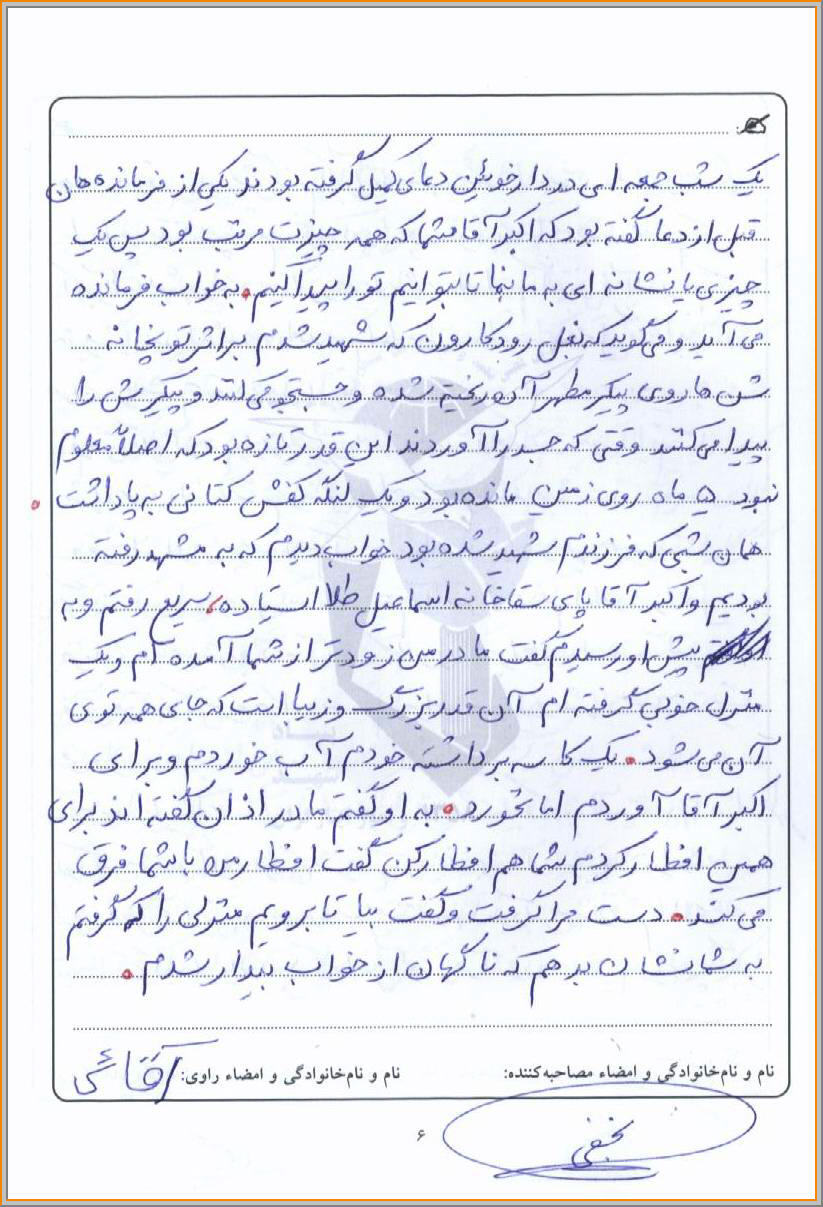 یک شب جمعه ای در دارخوئین دعای کمیل گرفته بودند یکی از فرمانده هان
قبل از دعا گفته بود که اکبر آقا شما که همه چیزت مرتب بود پس یک
چیزی یا نشانه ای به ما بنما تا بتوانیم تو را پیدا کنیم. به خواب فرمانده
می آید و می گوید که بغل رود کارون که شهید شدم بر اثر توپخانه
شن ها روی پیکر مطهر آن ریخته شده و جستجو می کنند و پیکرش را
پیدا می کنند وقتی که جسد را آوردند این قدر تازه بود که اصلاً معلوم
نبود ۵ ماه روی زمین مانده بود و یک لنگه کفش کتانی به پا داشت.
همان شبی که فرزندم شهید شده بود خواب دیدم که به مشهد رفته
بودیم و اکبر آقا پای سقاخانه اسماعیل طلا ایستاده، سریع رفتم و به
پیش او رسیدم گفت مادر من زودتر از شما آمده ام و یک
منزل خوبی گرفته ام آن قدر بزرگ و زیبا است که جای همه توی
آن می شود. یک کاسه برداشته خودم آب خوردم و برای
اکبر آقا آوردم اما نخورد. به او گفتم مادر اذان گفته اند برای
همین افطار کردم شما هم افطار کن گفت افطار من با شما فرق
می کند. دست مرا گرفت و گفت بیا تا برویم منزلی را که گرفتم
به شما نشان بدهم که ناگهان از خواب بیدار شدم.
نام و نام‌خانوادگی و امضاء مصاحبه‌کننده: نام و نام‌خانوادگی و امضاء راوی: آقائی
نجفی
۶